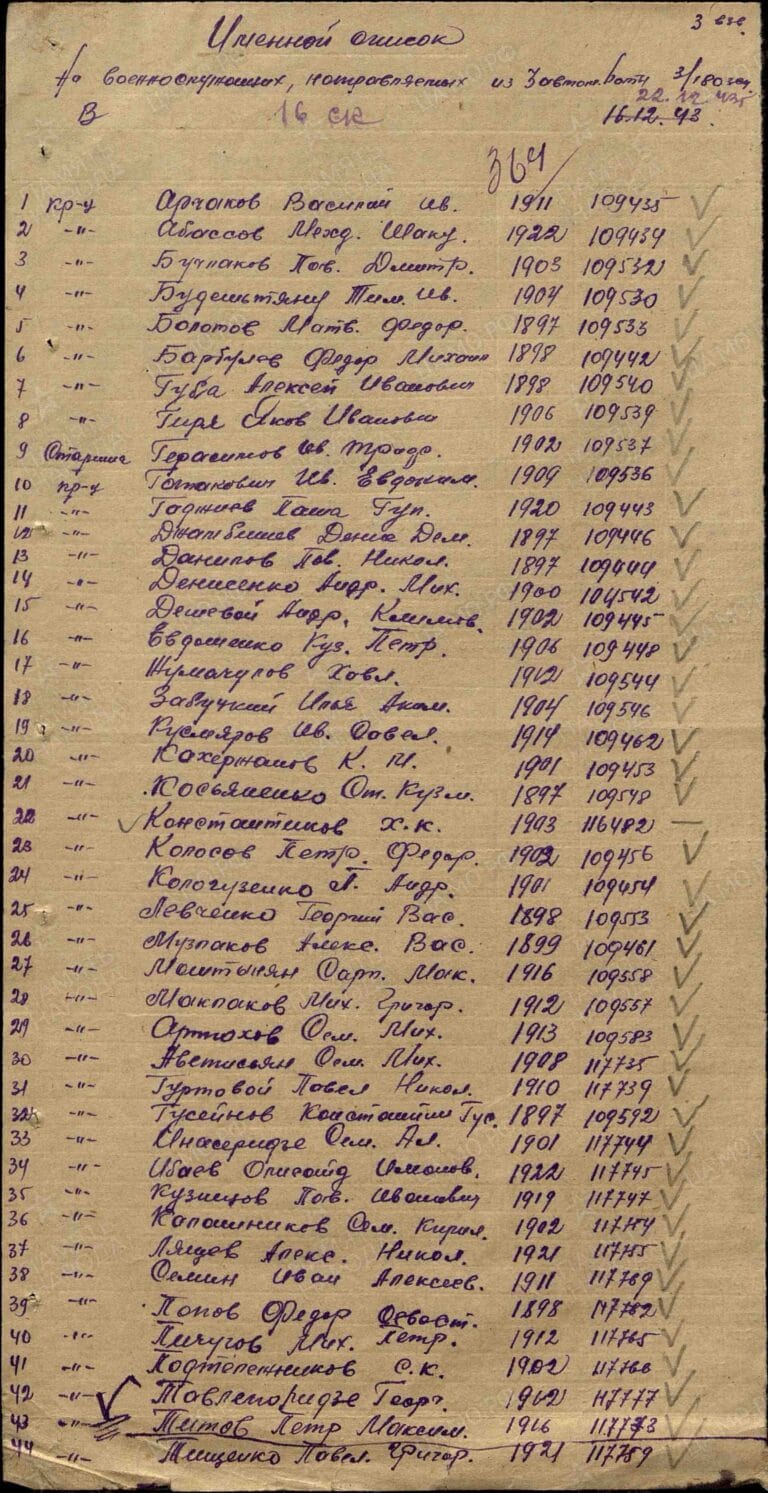 3 экз
Именной список
На военнослужащих, направляемых из 3 автот. бат.
22.12.43г
В 16 ск 16.12.43.
364/
1 кр-ц Арчаков Василий Ив. 1911 109435
2 -"- Абассов Межд. Шаку. 1922 109434
3 -"- Бучпаков Пав. Дмитр. 1903 109532
4 -"- Будештяну Тим. Ив. 1904 109530
5 -"- Болотов Матв. Федор. 1897 109533
6 -"- Барбулев Федор Михаил 1898 109442
7 -"- Губа Алексей Иванович 1898 109540
8 -"- Гиря Яков Иванович 1906 109539
9 Старшина Герасимов Ив. 1902 109537
10 кр-ц Готакович Ив. Евдоким. 1909 109536
11 -"- Гаджиев Паша Гул. 1920 109443
12 -"- Джамбишев Дениа Дем. 1897 109446
13 -"- Данилов Пав. Никол. 1897 109444
14 -"- Денисенко Андр. Мих. 1900 104542
15 -"- Дешевой Андр. Климов. 1902 109445
16 -"- Евдошенко Куз. Петр. 1906 109448
17 -"- Жумачулов Ховл. 1912 109544
18 -"- Забуцкий Илья Аким. 1904 109546
19 -"- Кусмяров Ив. Савел. 1914 109462
20 -"- Кахержанов К. И. 1901 109453
21 -"- Косьяненко Ст. Кузм. 1897 109548
22 -"- Константинов Х.К. 1903 116482 —
23 -"- Колосов Петр. Федор. 1902 109456
24 -"- Кологузенко П. Андр. 1901 109454
25 -"- Левченко Георгий Вас. 1898 109553
26 -"- Музлаков Алекс. Вас. 1899 109461
27 -"- Моштынян Сарп. Мак. 1916 109558
28 -"- Маклаков Мих. Григор. 1912 109557
29 -"- Артюхов Сем. Мих. 1913 109583
30 -"- Аветисьян Сем. Мих. 1908 117735
31 -"- Гуртовой Павел Никол. 1910 117739
32 -"- Гусейнов Константин Гус. 1897 109592
33 -"- Инасеридзе Сем. Ал. 1901 117744
34 -"- Ибаев Имамов. 1922 117745
35 -"- Кузнецов Пав. Иванович 1919 117747
36 -"- Калашников Сем. Кирил. 1902
37 -"- Лящев Алекс. Никол. 1921
38 -"- Семин Иван Алексеев. 1911 117769
39 -"- Попов Федор Севаст. 1898
40 -"- Пичугов Мих. Петр. 1912 117765
41 -"- Подтележников С.К. 1902 117766
42 -"- Тавлепоридзе Георг. 1912 117777
43 -"- Титов Петр Максим. 1916 117773
44 -"- Тищенко Павел. Григор. 1921